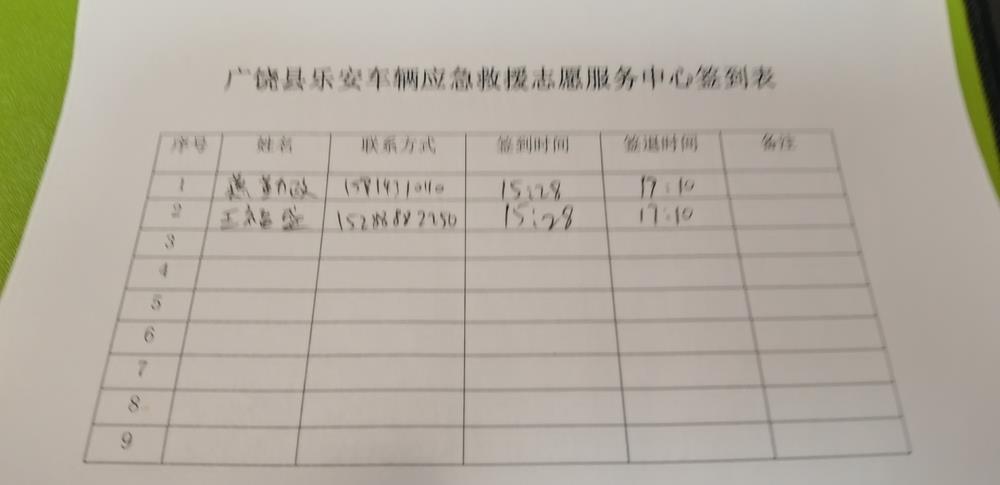 广饶县乐安车辆应急救援志愿服务中心签到表
序号 姓名 联系方式 签到时间 签退时间 备注
1 15:28 17:10
2 王 盛 15288882250 15:28 17:10
3
4
5
6
7
8
9